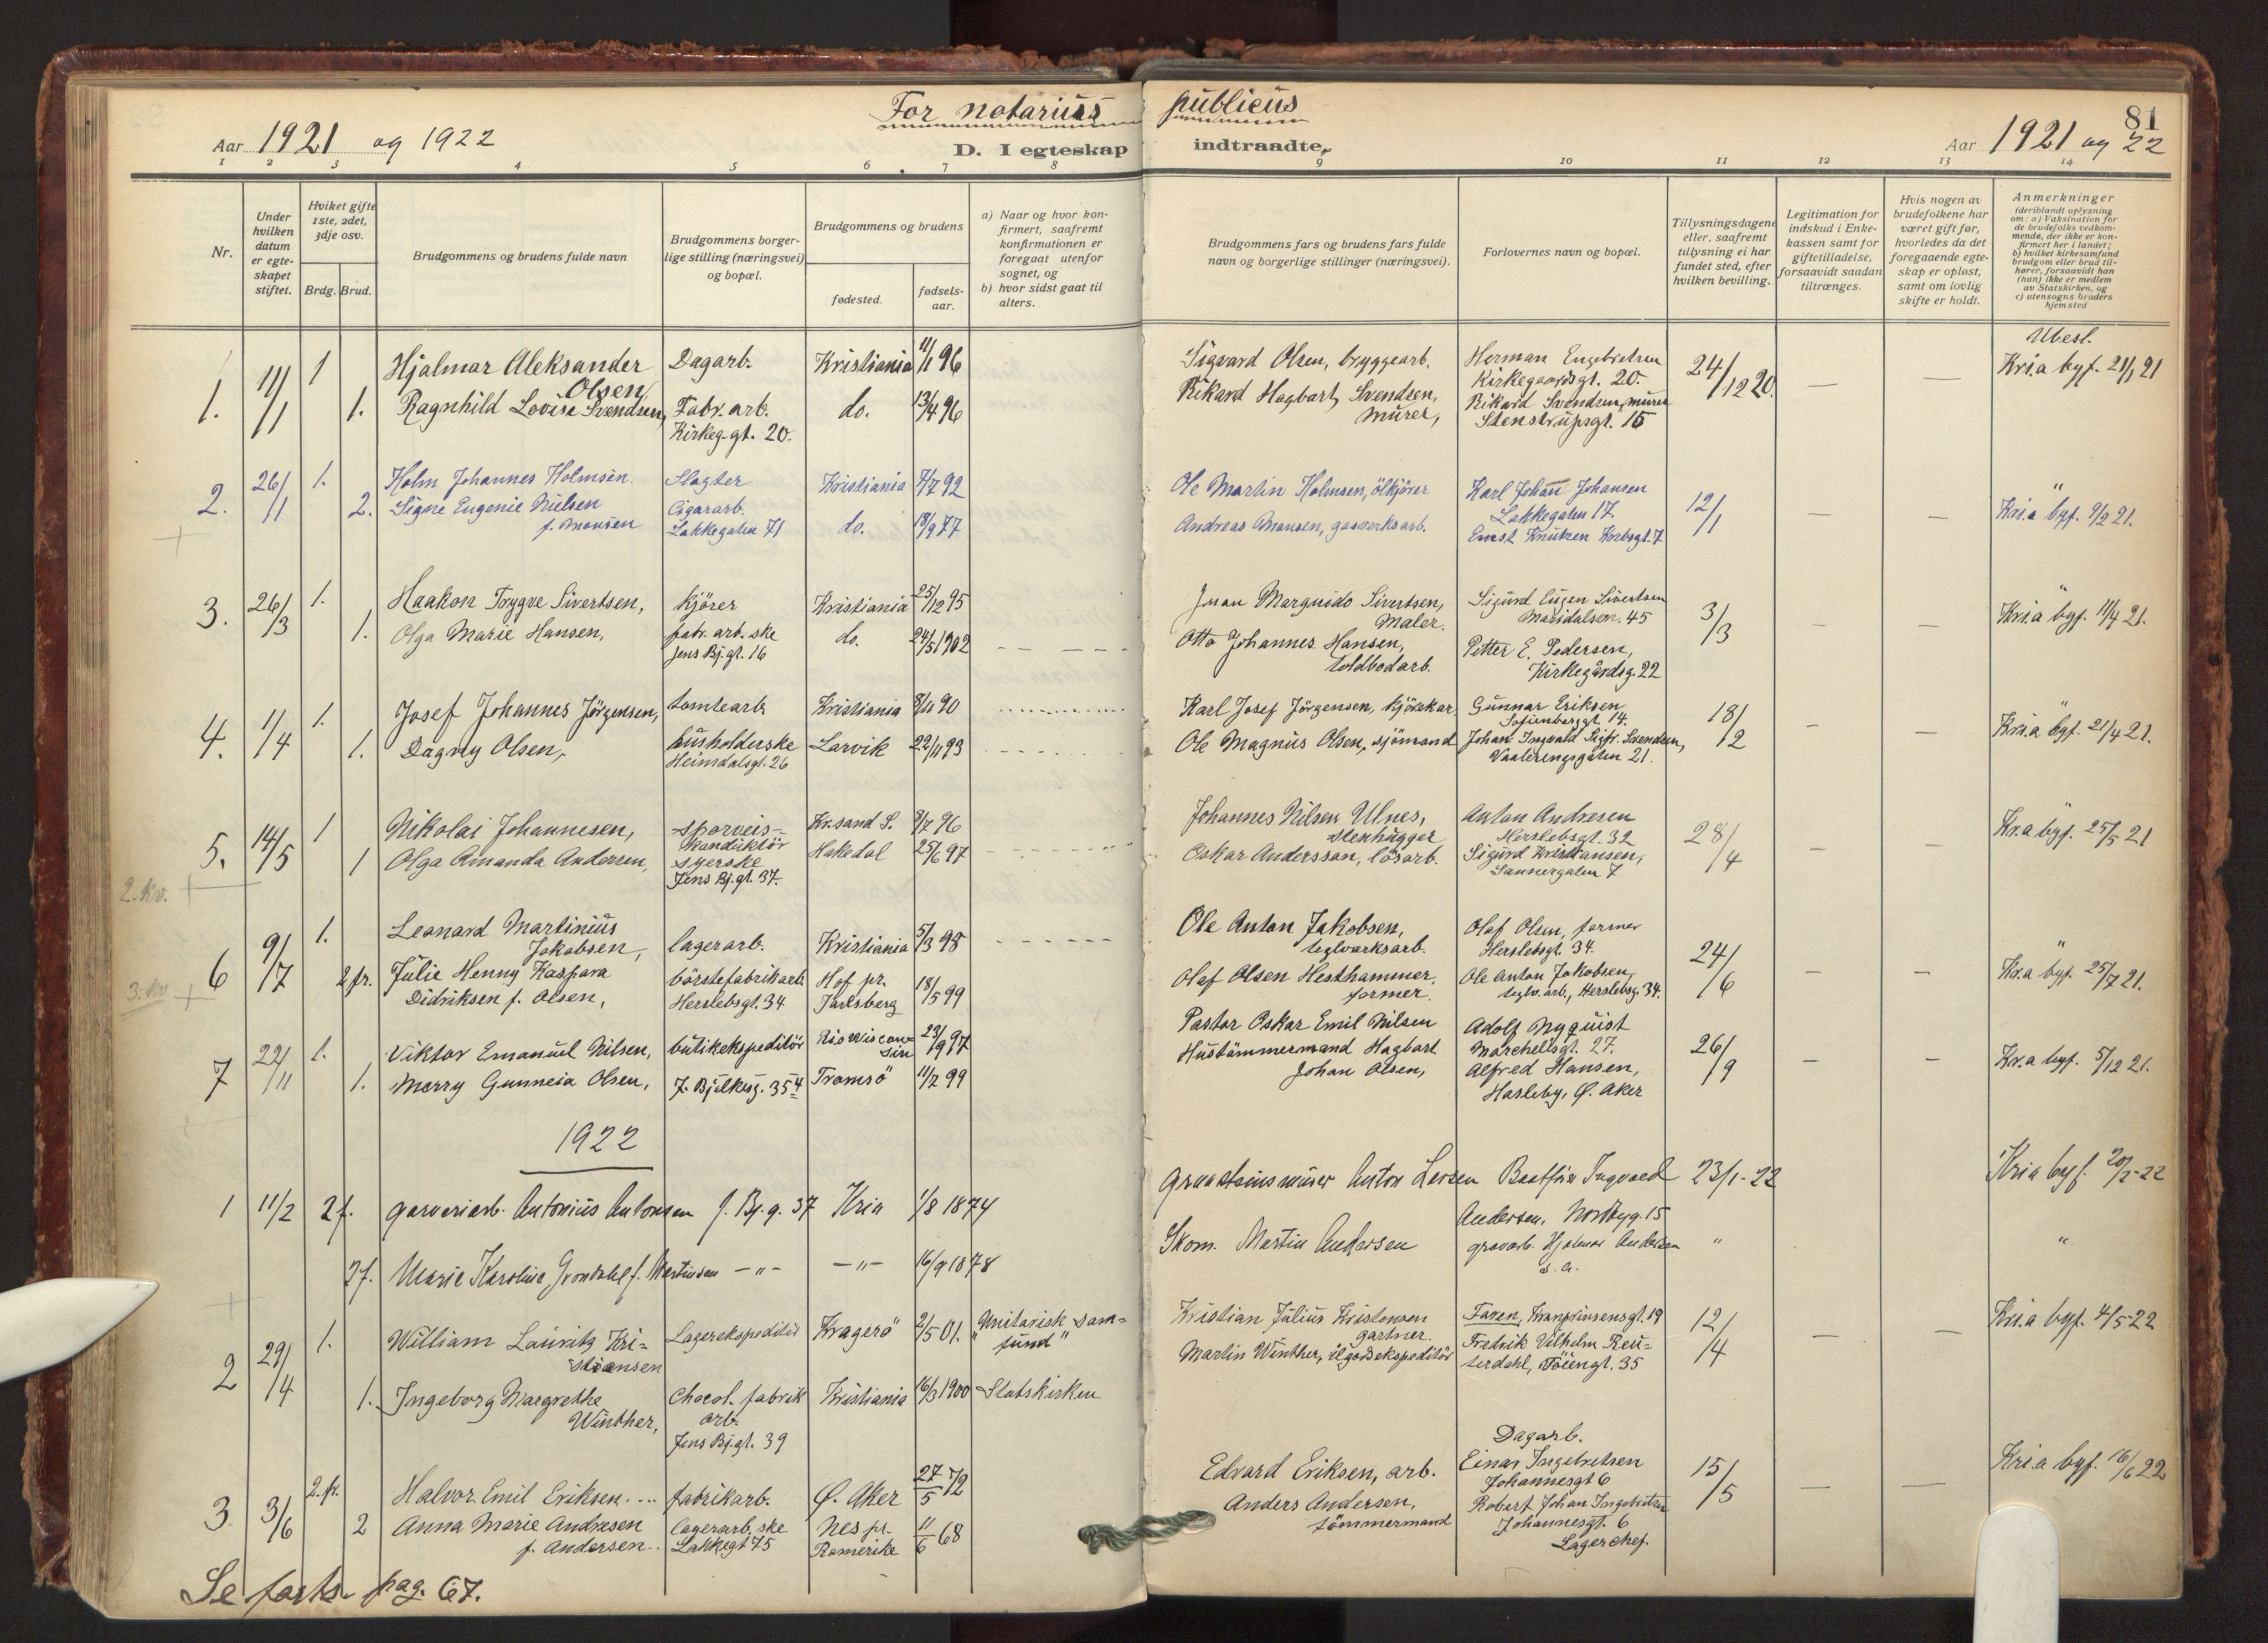 For notarius publicus
81
Aar 1921 og 1922
D. I egteskap indtraadte,
Aar 1921 og 22
1 2 3 4 5 6 7 8 9 10 11 12 13 14
Nr.
Under hvilken datum er egteskapet stiftet.
Hviket gifte 1ste, 2det, 3dje osv.
Brdg. Brud.
Brudgommens og brudens fulde navn
Brudgommens borgerlige stilling (næringsvei) og bopæl.
Brudgommens og brudens
fødested.
fødselsaar.
a) Naar og hvor konfirmert, saafremt konfirmationen er foregaat utenfor sognet, og
b) hvor sidst gaat til alters.
Brudgommens fars og brudens fars fulde navn og borgerlige stillinger (næringsvei).
Forlovernes navn og bopæl.
Tillysningsdagene eller, saafremt tillysning ei har fundet sted, efter hvilken bevilling.
Legitimation for indskud i Enkekassen samt for giftetilladelse, forsaavidt saadan tiltrænges.
Hvis nogen av brudefolkene har været gift før, hvorledes da det foregaaende egteskap er opløst, samt om lovlig skifte er holdt.
Anmerkninger
(deriblandt oplysning om: a) Vaksination for de brudefolks vedkommende, der ikke er konfirmert her i landet; b) hvilket kirkesamfund brudgom eller brud tilhører, forsaavidt han (hun) ikke er medlem av Statskirken, og c) utensogns bruders hjemsted
1. 11/1 1 Hjalmar Aleksander Olsen, Dagarb. Kristiania 11/1 96 Sigvard Olsen, bryggearb. Herman Engebretsen Kirkegaardsgt. 20. 24/12 20. — — Ubesl. Kri.a byf. 21/1 21
1. Ragnhild Lovise Svendsen, Fabr. arb. Kirkeg.gt. 20. do. 13/4 96 Rikard Hagbart Svendsen, murer, Rikard Svendsen, murer Stenstrupsgt. 15
2. 26/1 1. Holm Johannes Holmsen. Slagter Kristiania 7/7 92 Ole Martin Holmsen, ölkjörer Karl Johan Johansen Lakkegaten 17. 12/1 — — " Kri.a byf. 9/2 21.
2. Signe Eugenie Nielsen f. Monsen Cigararb. Lakkegaten 71 do. 18/9 77 Andreas Monsen, gasverksarb. Ernst Knutzen Krebsgt. 7
3. 26/3 1. Haakon Trygve Sivertsen, Kjörer Kristiania 25/12 95 Juan Marguido Sivertsen, Maler. Sigurd Eugen Sivertsen Maridalsv. 45 3/3 — — " Kri.a byf. 11/4 21.
1. Olga Marie Hansen, fabr. arb. ske Jens Bj.gt. 16 do. 24/5 1902 Otto Johannes Hansen, toldbodarb. Petter E. Pedersen, Kirkegårdsg. 22
4. 1/4 1. Josef Johannes Jörgensen, tomtearb. Kristiania 8/11 90 Karl Josef Jörgensen, kjörekar Gunnar Eriksen Sofienberggt. 14. 18/2 — — " Kri.a byf. 21/4 21.
1. Dagny Olsen, husholderske Heimdalsgt. 26 Larvik 22/11 93 Ole Magnus Olsen, sjömand Johan Ingvald Sigfr. Svendsen, Vaalerengsgaten 21.
5. 14/5 1 Nikolai Johannesen, sporveiskonduktör Kr.sand S. 8/7 96 Johannes Nilsen Ulnes, stenhugger Anton Andresen Herslebsgt. 32 28/4 — — " Kr.a byf. 25/5 21
1 Olga Amanda Andersen, syerske Jens Bj.gt. 37. Hakedal 25/6 97 Oskar Andersson, lösarb. Sigurd Kristiansen, Sannergaten 7
2. kv. +
6 9/7 1. Leonard Martinius Jakobsen, lagerarb. Kristiania 5/3 98 Ole Anton Jakobsen, teglverksarb. Olaf Olsen, former Herslebsgt. 34. 24/6 — — " Kr.a byf. 25/7 21.
2 fr. Julie Henny Kaspara Didriksen f. Olsen, börstefabrikarb. Herslebsgt. 34 Hof pr. Jarlsberg 18/5 99 Olaf Olsen Hesthammer, former. Ole Anton Jakobsen, teglv. arb., Herslebsg. 34.
3. kv +
7 22/11 1. Viktor Emanuel Nilsen, butikekspeditör Rio Wisconsin 23/9 97 Pastor Oskar Emil Nilsen Adolf Nyquist Marchellsgt. 27. 26/9 — — Kr.a byf. 5/12 21.
1. Marry Gunneia Olsen, J. Bjelkesg. 35 4 Tromsö 11/2 99 Hustömmermand Hagbart Johan Olsen, Alfred Hansen, Hasleby, Ø. Aker
1922
1 11/2 2 f. garveriarb. Antonius Antonsen J. Bj. g. 37 Kria 1/8 1874 Graasteinsmurer Anton Larsen Ingvald Andersen, Nordbyg. 15 23/1-22 Kria byf. 20/2-22
2 f. Marie Karoline Grondahl f. Martinsen —"— —"— 16/9 1878 Skom. Martin Andersen gravarb. Hjalmar Andersen s. a. " "
2 29/4 1. William Lauritz Kristiansen Lagerekspeditör Kragerö 2/5 01. "Unitarisk samfund" Kristian Julius Kristensen gartner. Faren, Kronprinsensgt. 19 12/4 — — Kri.a byf. 4/5-22
1. Ingeborg Margrethe Winther, Chocol. fabrik arb. Jens Bj.gt. 39 Kristiania 16/3 1900 Statskirken Martin Winther, ilgodsekspeditör Fredrik Vilhelm Reuterdahl, Töiengt. 35
3. 3/6 2. fr. Halvor Emil Eriksen.... fabrikarb. Ø. Aker 27/5 72 Edvard Eriksen, arb. Dagarb. Einar Ingebretsen Johannesgt 6 15/5 — — Kri.a byf. 16/6 22
2 Anna Marie Andresen f. Andersen.. lagerarb.ske Lakkegt 75 Nes pr. Romerike 11/6 68 Anders Andersen, tömmermand Robert Johan Ingebretsen Johannesgt. 6 Lagerchef.
Se forts. pag. 67.